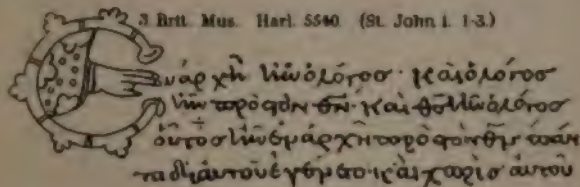 3 Brit. Mus. Harl. 5540. (St. John i. 1-3.)
Ἐν ἀρχῆ ἦν ὁ λόγοσ· καὶ ὁ λόγοσ
ἦν πρὸσ τὸν θν· καὶ θσ ἦν ὁ λόγοσ
οὗτοσ ἦν ἐν ἀρχῆ πρὸσ τὸν θν· πάν
τα δι αυτοῦ ἐγένετο· καὶ χωρὶσ ἀυτοῦ